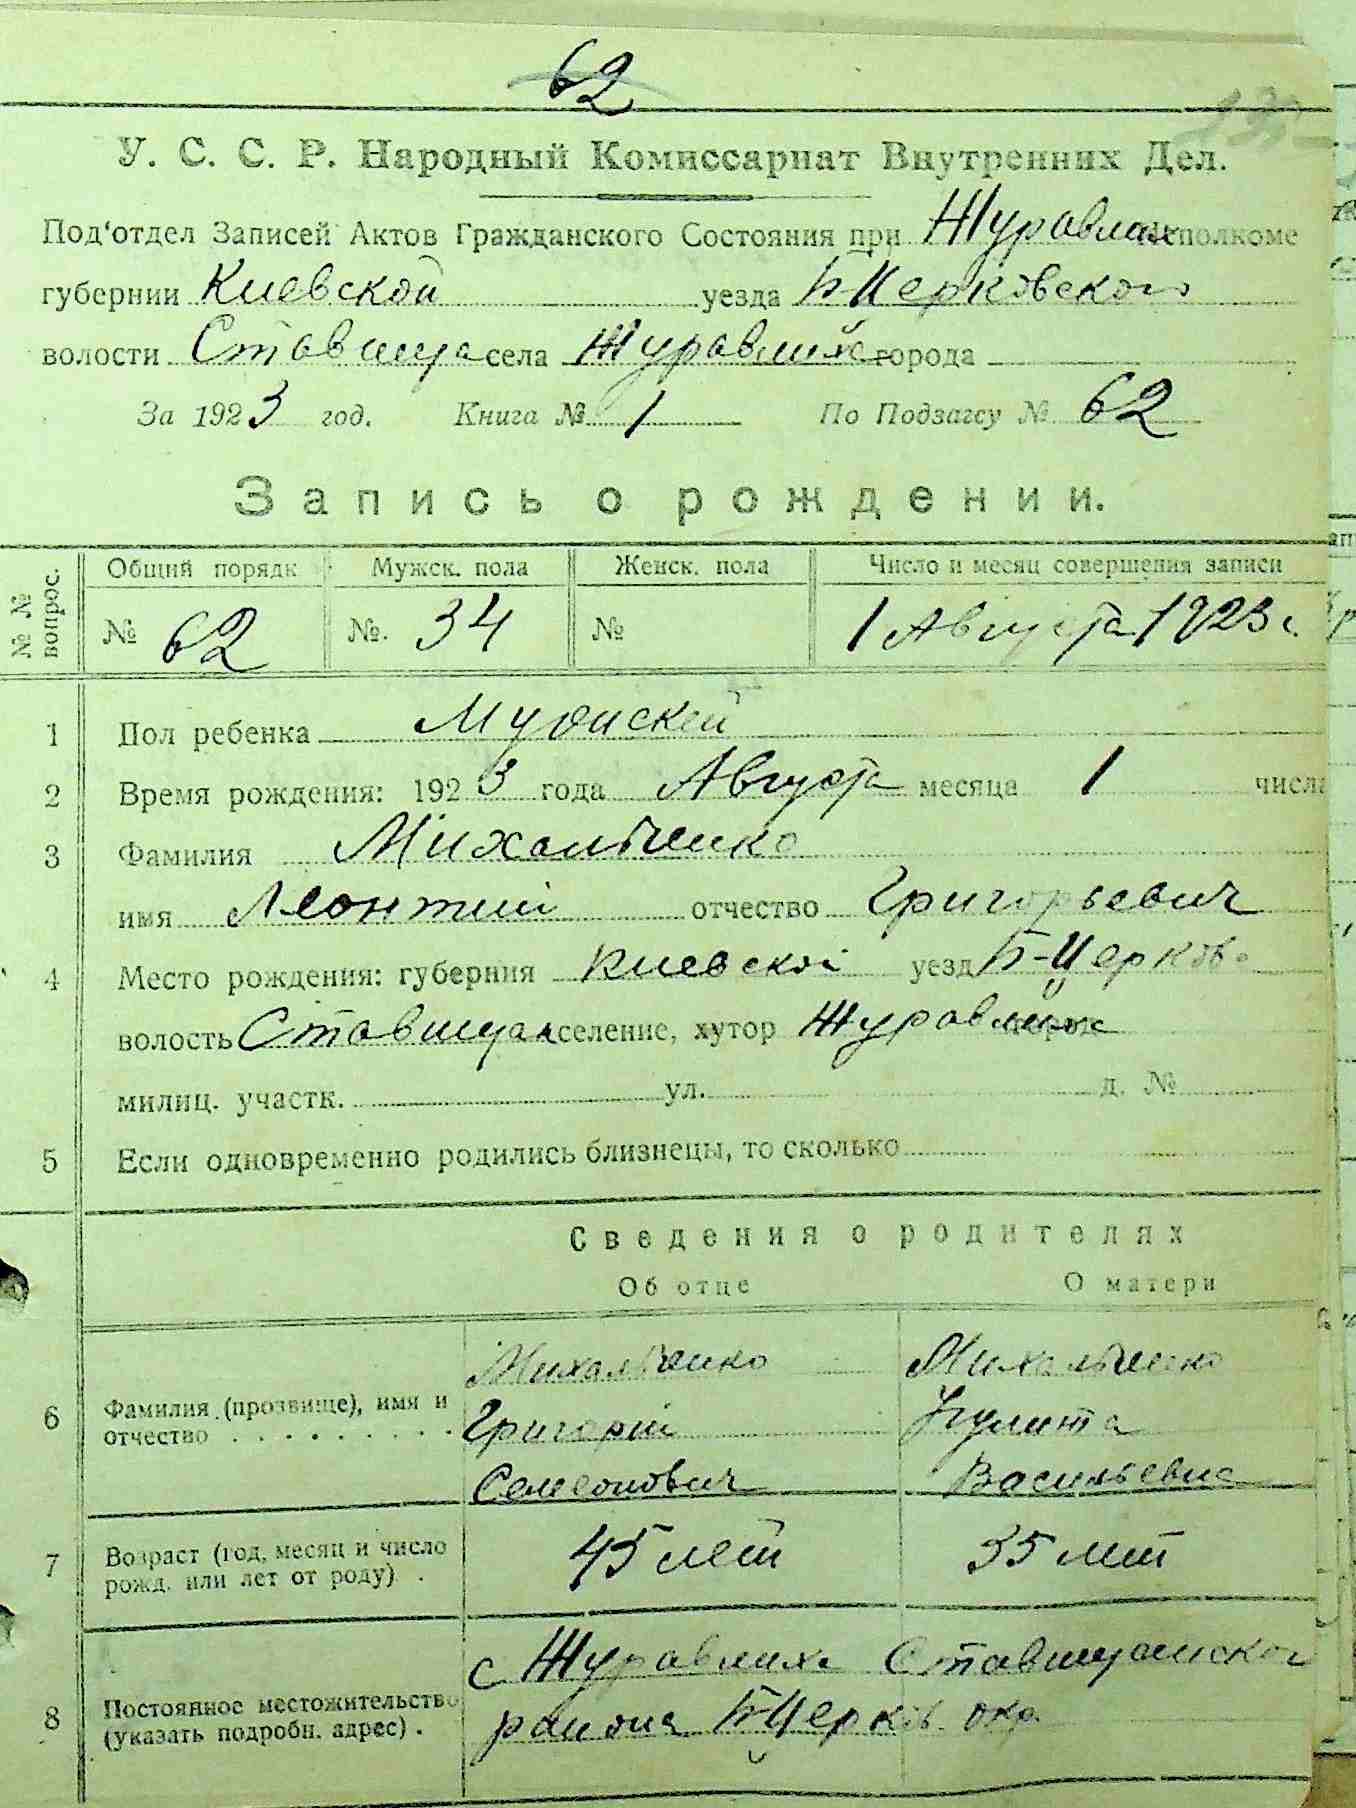 62
У. С. С. Р. Народный Комиссариат Внутренних Дел.
Под'отдел Записей Актов Гражданского Состояния при Журавлих исполкоме
губернии Киевской уезда Б-Церковского
волости Ставища села Журавлиха города
За 1923 год. Книга № 1 По Подзагсу № 62
Запись о рождении.
№ № вопрос. Общий порядк Мужск. пола Женск. пола Число и месяц совершения записи
№ 62 №. 34 № 1 Августа 1923 г.
1 Пол ребенка Мужской
2 Время рождения: 1923 года Августа месяца 1 числа
3 Фамилия Михальченко
имя Леонтий отчество Григорьевич
4 Место рождения: губерния Киевской уезд Б-Церков
волость Ставищан селение, хутор Журавлиха
милиц. участк. ул. д. №
5 Если одновременно родились близнецы, то сколько
Сведения о родителях
Об отце О матери
6 Фамилия (прозвище), имя и отчество Михальченко Михальченко
Григорій Улита
Семенович Васильевна
7 Возраст (год, месяц и число рожд. или лет от роду) 45 лет 35 лет
8 Постоянное местожительство (указать подробн. адрес) с Журавлиха Ставищанской
района Б-Церков. окр.